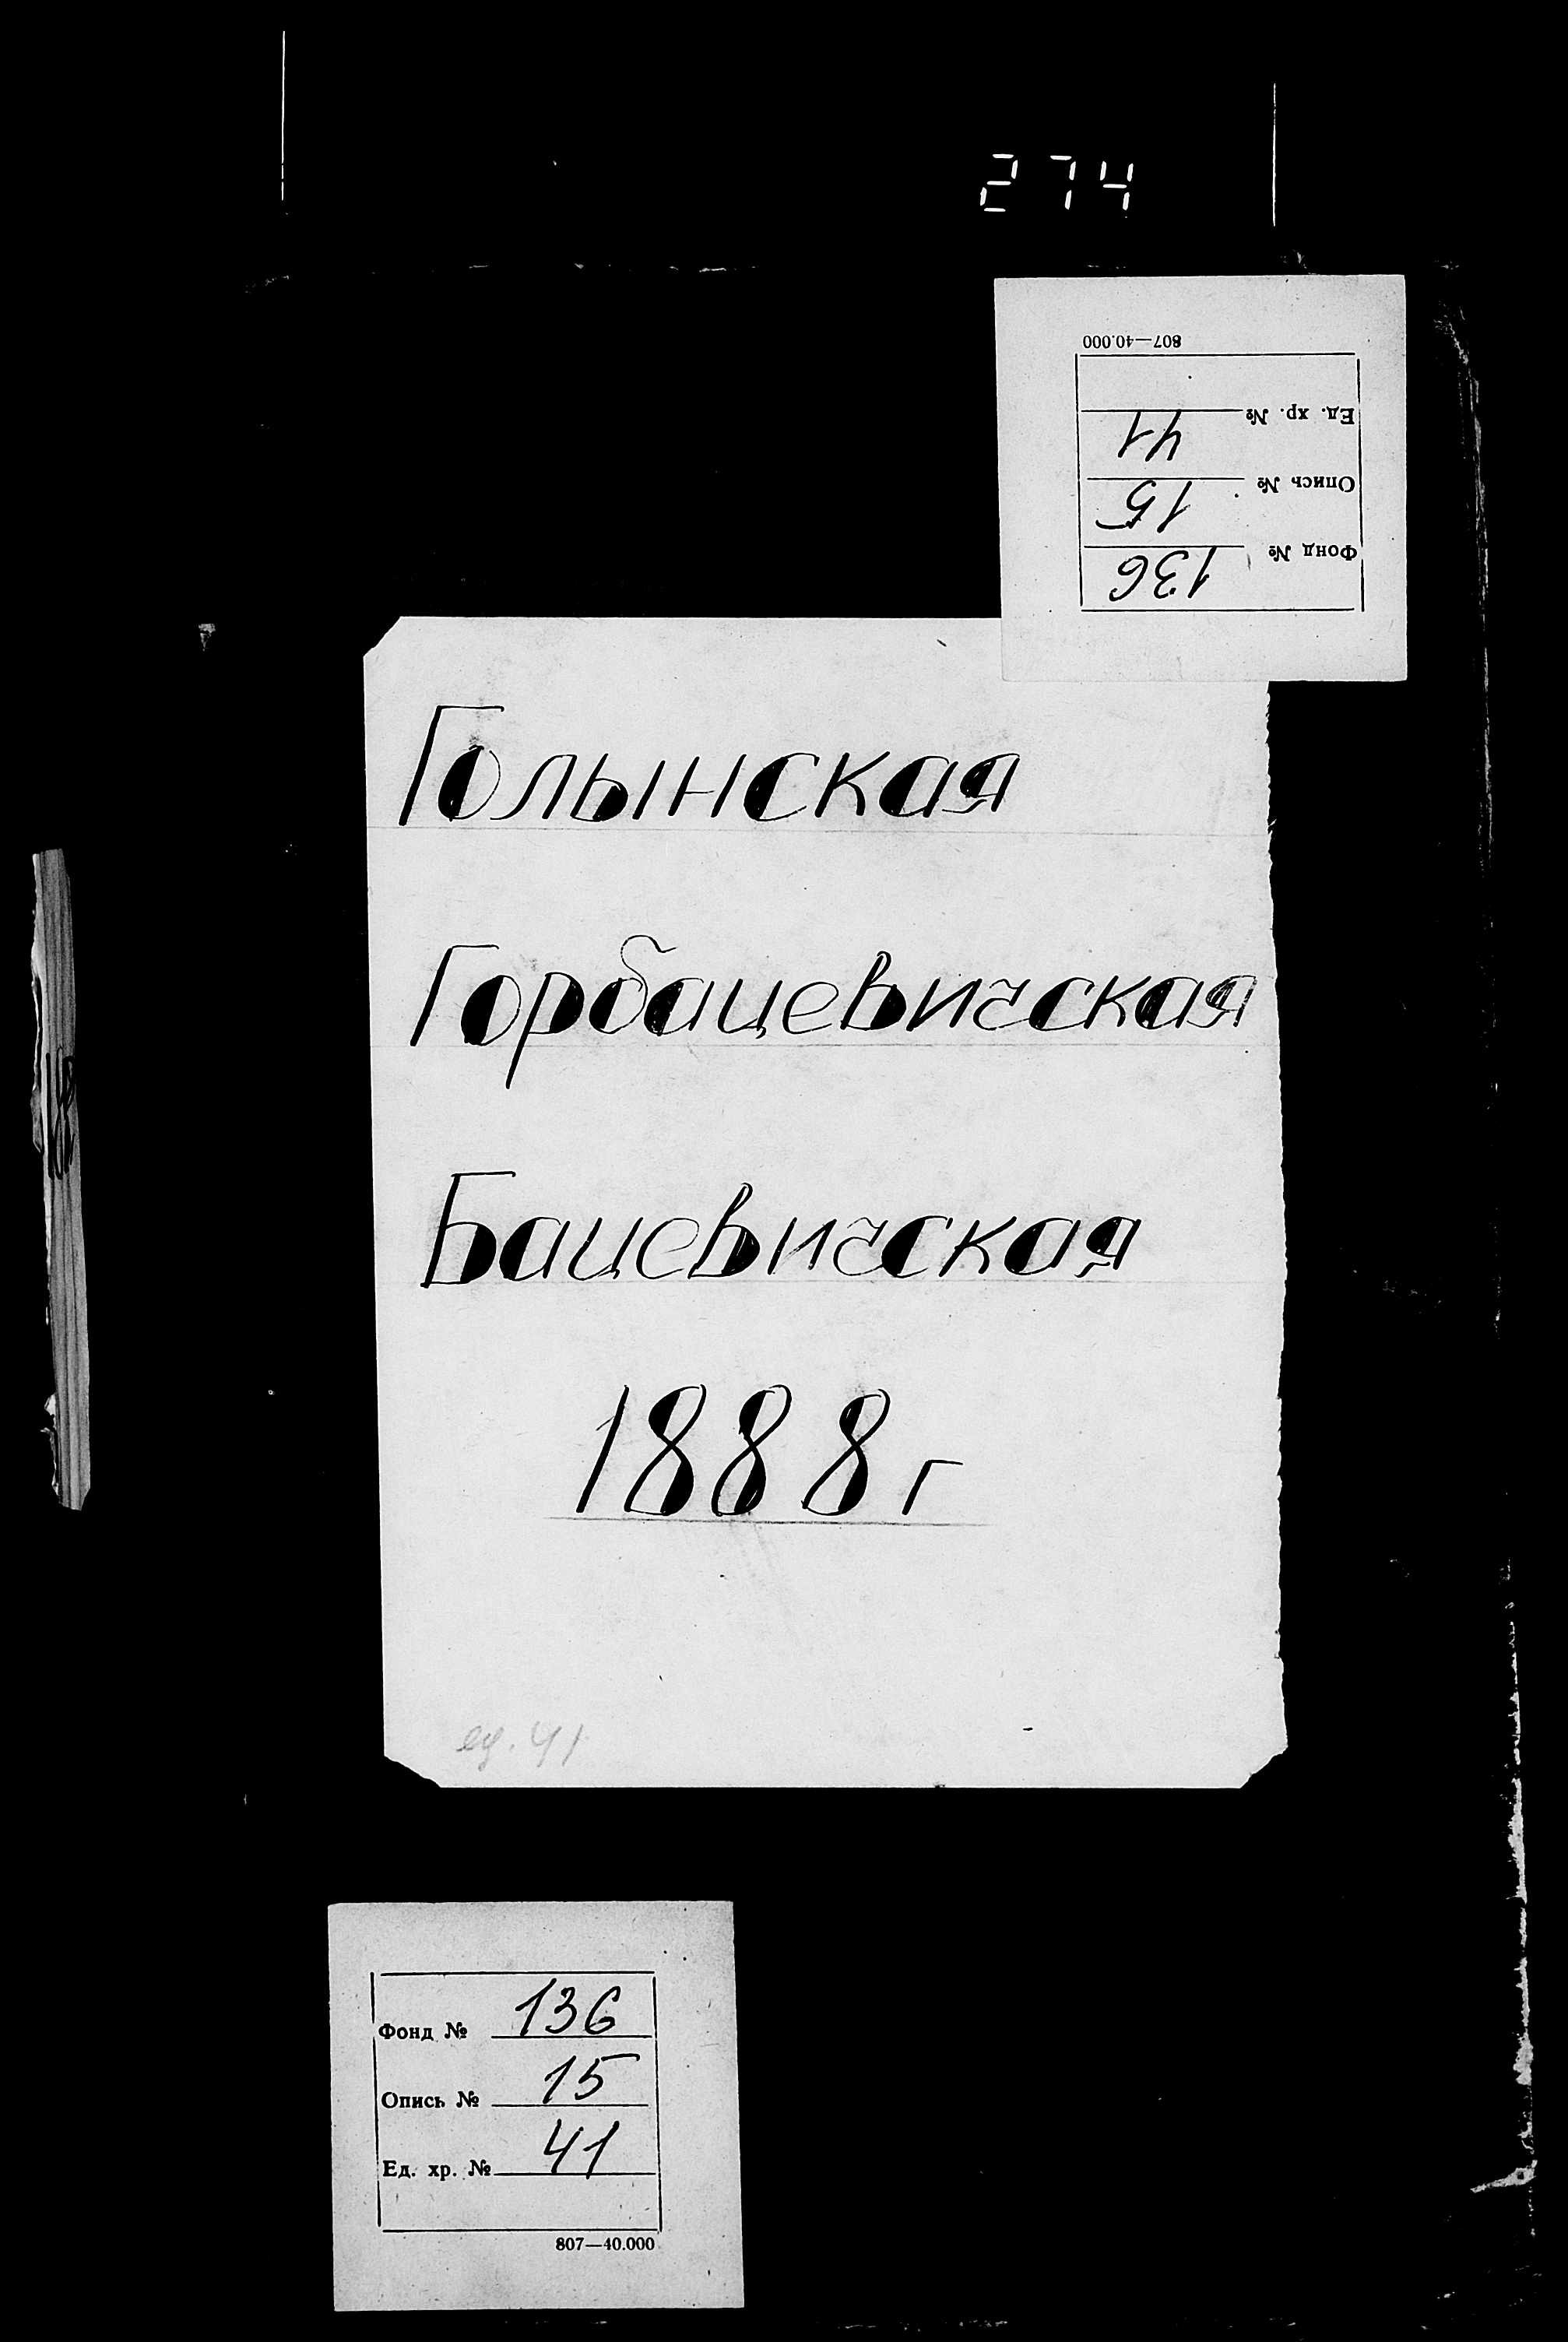 274
807—40.000
Ед. хр. № 41
Опись № 15
Фонд № 136
Голынская
Горбацевичская
Бацевичская
1888 г
ед. 41
Фонд № 136
Опись № 15
Ед. хр. № 41
807—40.000